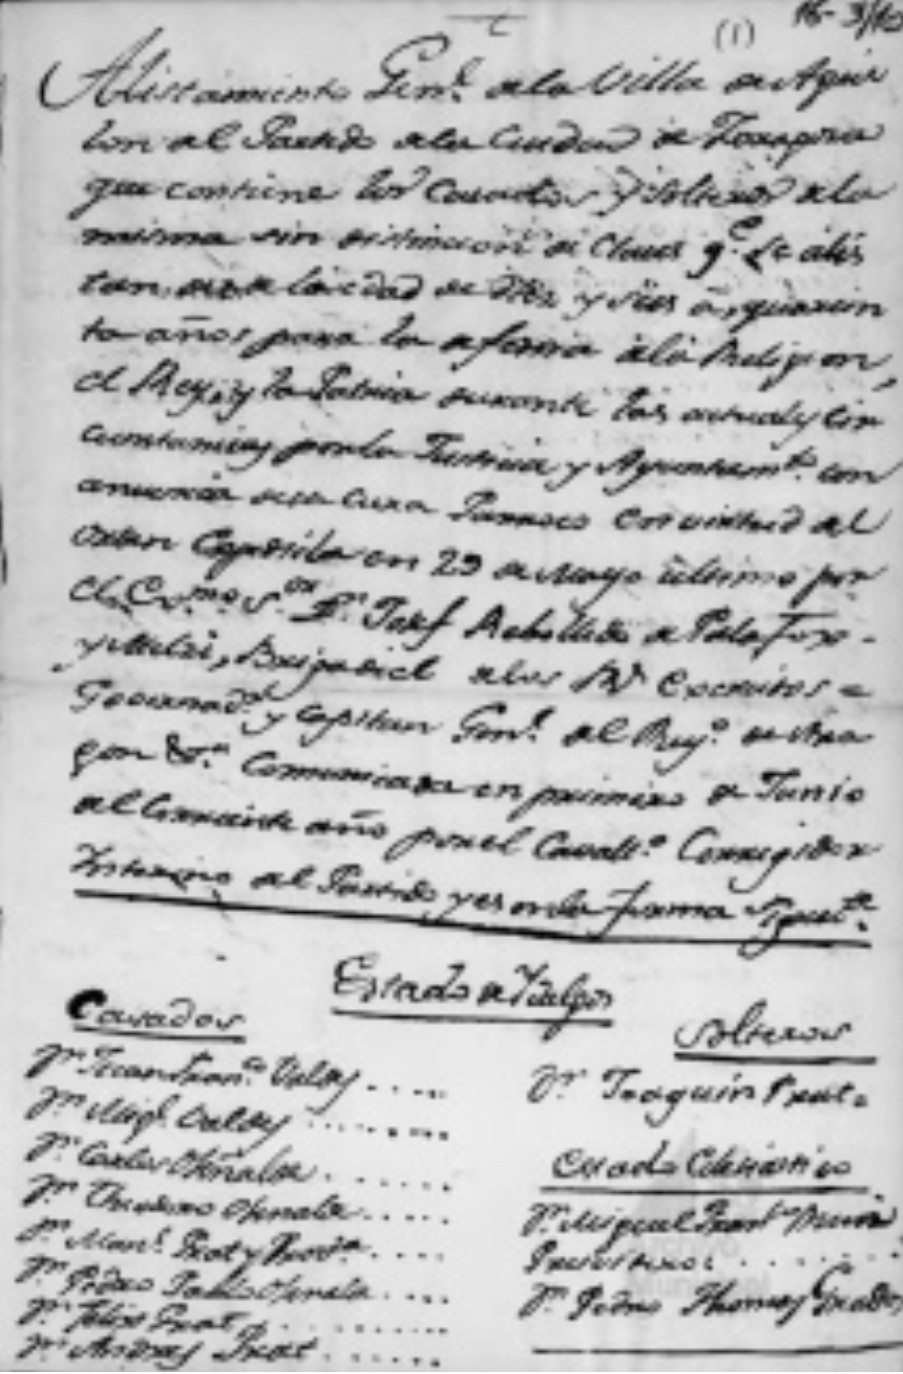 (1)
16-3/10
Alistamiento Genl. dela Villa de Agui
lon del Partido dela Ciudad de Zaragoza
que contiene los Casados y Solteros dela
misma sin distincion de Clases qe. se alis
tan desde la edad de Diez y seis á quaren
ta años para la defensa dela Religion,
el Rey, y la Patria durante las actuales cir
cunstancias por la Justicia y Ayuntamto. con
anuencia del Cura Parroco en virtud del
orden Expedida en 29 de Mayo ultimo por
el Exmo. Sor. Dn. Josef Rebolledo de Palafox
y Melzi, Brigadiel delos Rs. Exercitos
Governador y Capitan Genl. del Reyo. de Ara
gon &a. Comunicada en primero de Junio
del Corriente año por el Cavallo. Corregidor
Interino del Partido y es en la forma Siguite.
Estado de Ydalgos
Casados
Dn. Juan Frano. Valdes
Dn. Migl. Valdes
Dn. Carlos
Dn. Theodoro
Dn. Manl. Prat y
Dn. Pedro Pablo
Dn. Felix Prat
Dn. Andres Prat
Solteros
Dn. Joaquin Prat
Estado Eclesiastico
Dn. Miguel
Presvitero
Dn. Pedro Thomas
Archivo
Municipal